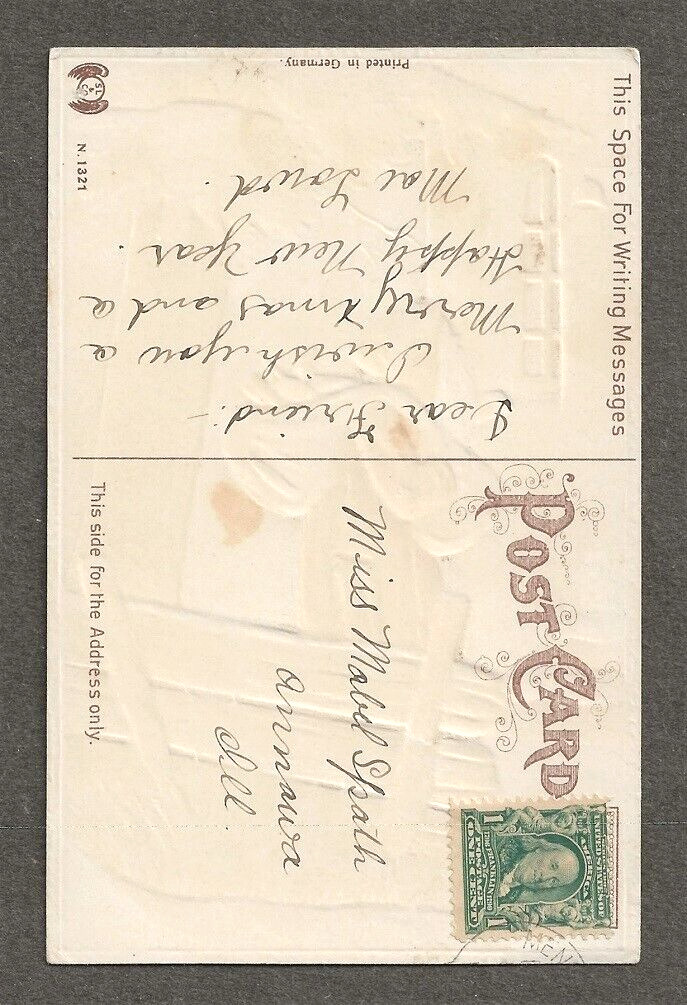 This Space For Writing Messages
Dear Friend:-
I wish you a
Merry Xmas and a
Happy New Year.
Mae
Printed in Germany.
SL & Co
N. 1321
POST CARD
Miss Mabel Spath
Annawa
Ill
This side for the Address only.
UNITED STATES OF AMERICA
POSTAGE
1 ONE CENT 1
MEN